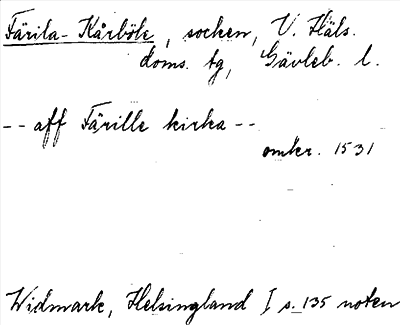 Färila-Kårböle, socken, V. Häls.
doms. tg, Gävleb. l.
-- aff Färille kirka --
omkr. 1531
Widmark, Helsingland I s. 135 noten